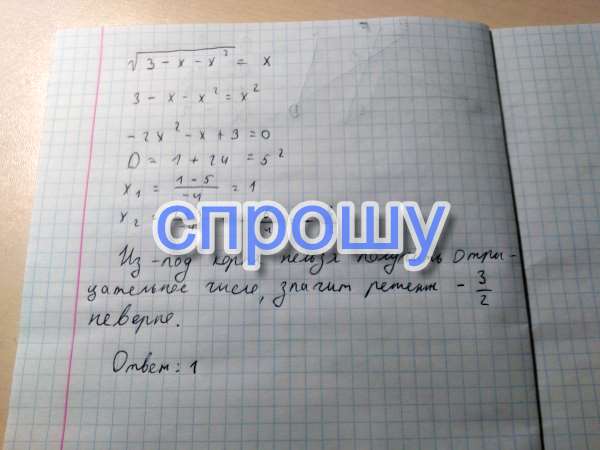 √3 - x - x² = x
3 - x - x² = x²
-2x² - x + 3 = 0
D = 1 + 24 = 5²
x₁ = (1 - 5)/(-4) = 1
x₂ =
спрошу
Из-под нельзя отри-
цательное число, значит решение - 3/2
неверно.
Ответ: 1